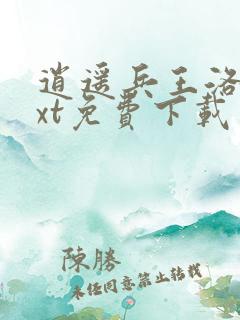 逍遥兵王洛
xt免費下載
陳勝
未任同意禁止转载